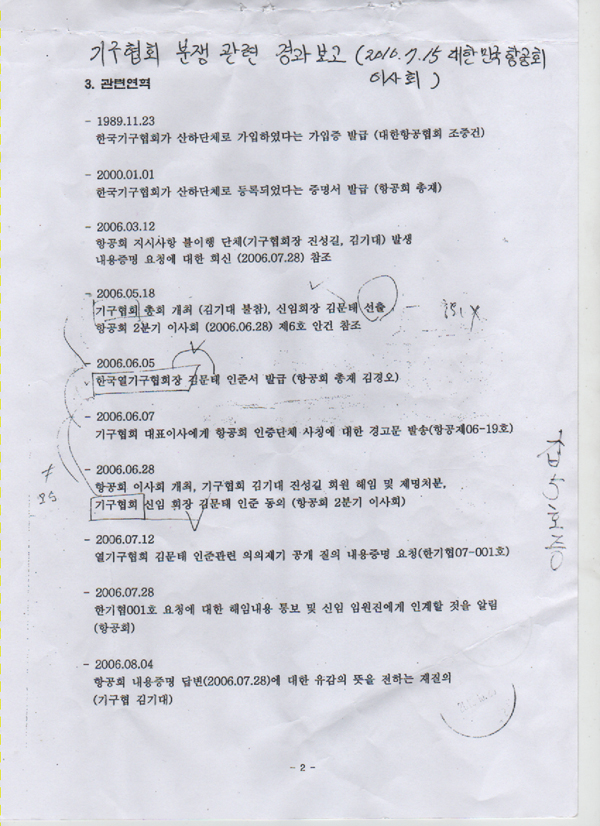 기구협회 분쟁 관련 경과보고 (2010.7.15 대한민국항공회
이사회)
3. 관련연혁
- 1989.11.23
한국기구협회가 산하단체로 가입하였다는 가입증 발급 (대한항공협회 조중건)
- 2000.01.01
한국기구협회가 산하단체로 등록되었다는 증명서 발급 (항공회 총재)
- 2006.03.12
항공회 지시사항 불이행 단체(기구협회장 진성길, 김기대) 발생
내용증명 요청에 대한 회신 (2006.07.28) 참조
- 2006.05.18
기구협회 총회 개최 (김기대 불참), 신임회장 김문태 선출
항공회 2분기 이사회 (2006.06.28) 제6호 안건 참조
- 2006.06.05
한국열기구협회장 김문태 인준서 발급 (항공회 총재 김경오)
- 2006.06.07
기구협회 대표이사에게 항공회 인증단체 사칭에 대한 경고문 발송(항공제06-19호)
- 2006.06.28
항공회 이사회 개최, 기구협회 김기대 진성길 회원 해임 및 제명처분,
기구협회 신임 회장 김문태 인준 동의 (항공회 2분기 이사회)
- 2006.07.12
열기구협회 김문태 인준관련 의의제기 공개 질의 내용증명 요청(한기협07-001호)
- 2006.07.28
한기협001호 요청에 대한 해임내용 통보 및 신임 임원진에게 인계할 것을 알림
(항공회)
- 2006.08.04
항공회 내용증명 답변(2006.07.28)에 대한 유감의 뜻을 전하는 재질의
(기구협 김기대)
- 2 -